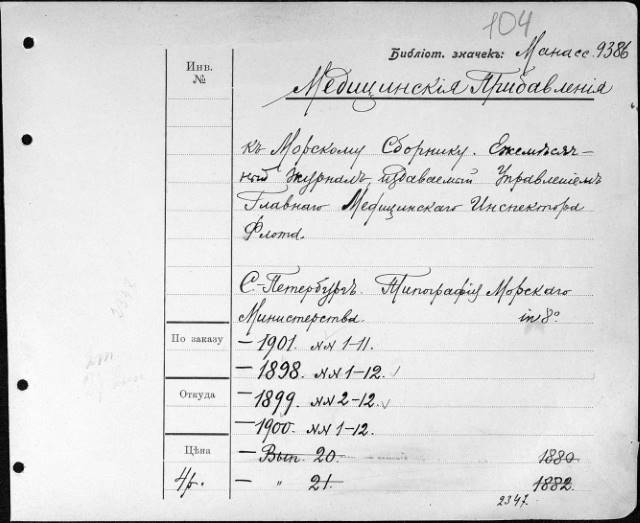 104
Библіот. значекъ: Манасс. 9386
Инв.
№
Медицинскія Прибавленія
къ Морскому Сборнику. Ежемѣсяч-
ный журналъ, издаваемый Управленіемъ
Главнаго Медицинскаго Инспектора
Флота.
С.-Петербургъ. Типографія Морскаго
Министерства. in 8º
По заказу
— 1901. №№ 1-11.
— 1898. №№ 1-12.
Откуда
— 1899. №№ 2-12.
— 1900. №№ 1-12.
Цѣна
— Вып. 20. 1880
4р. — " 21. 1882
2347.